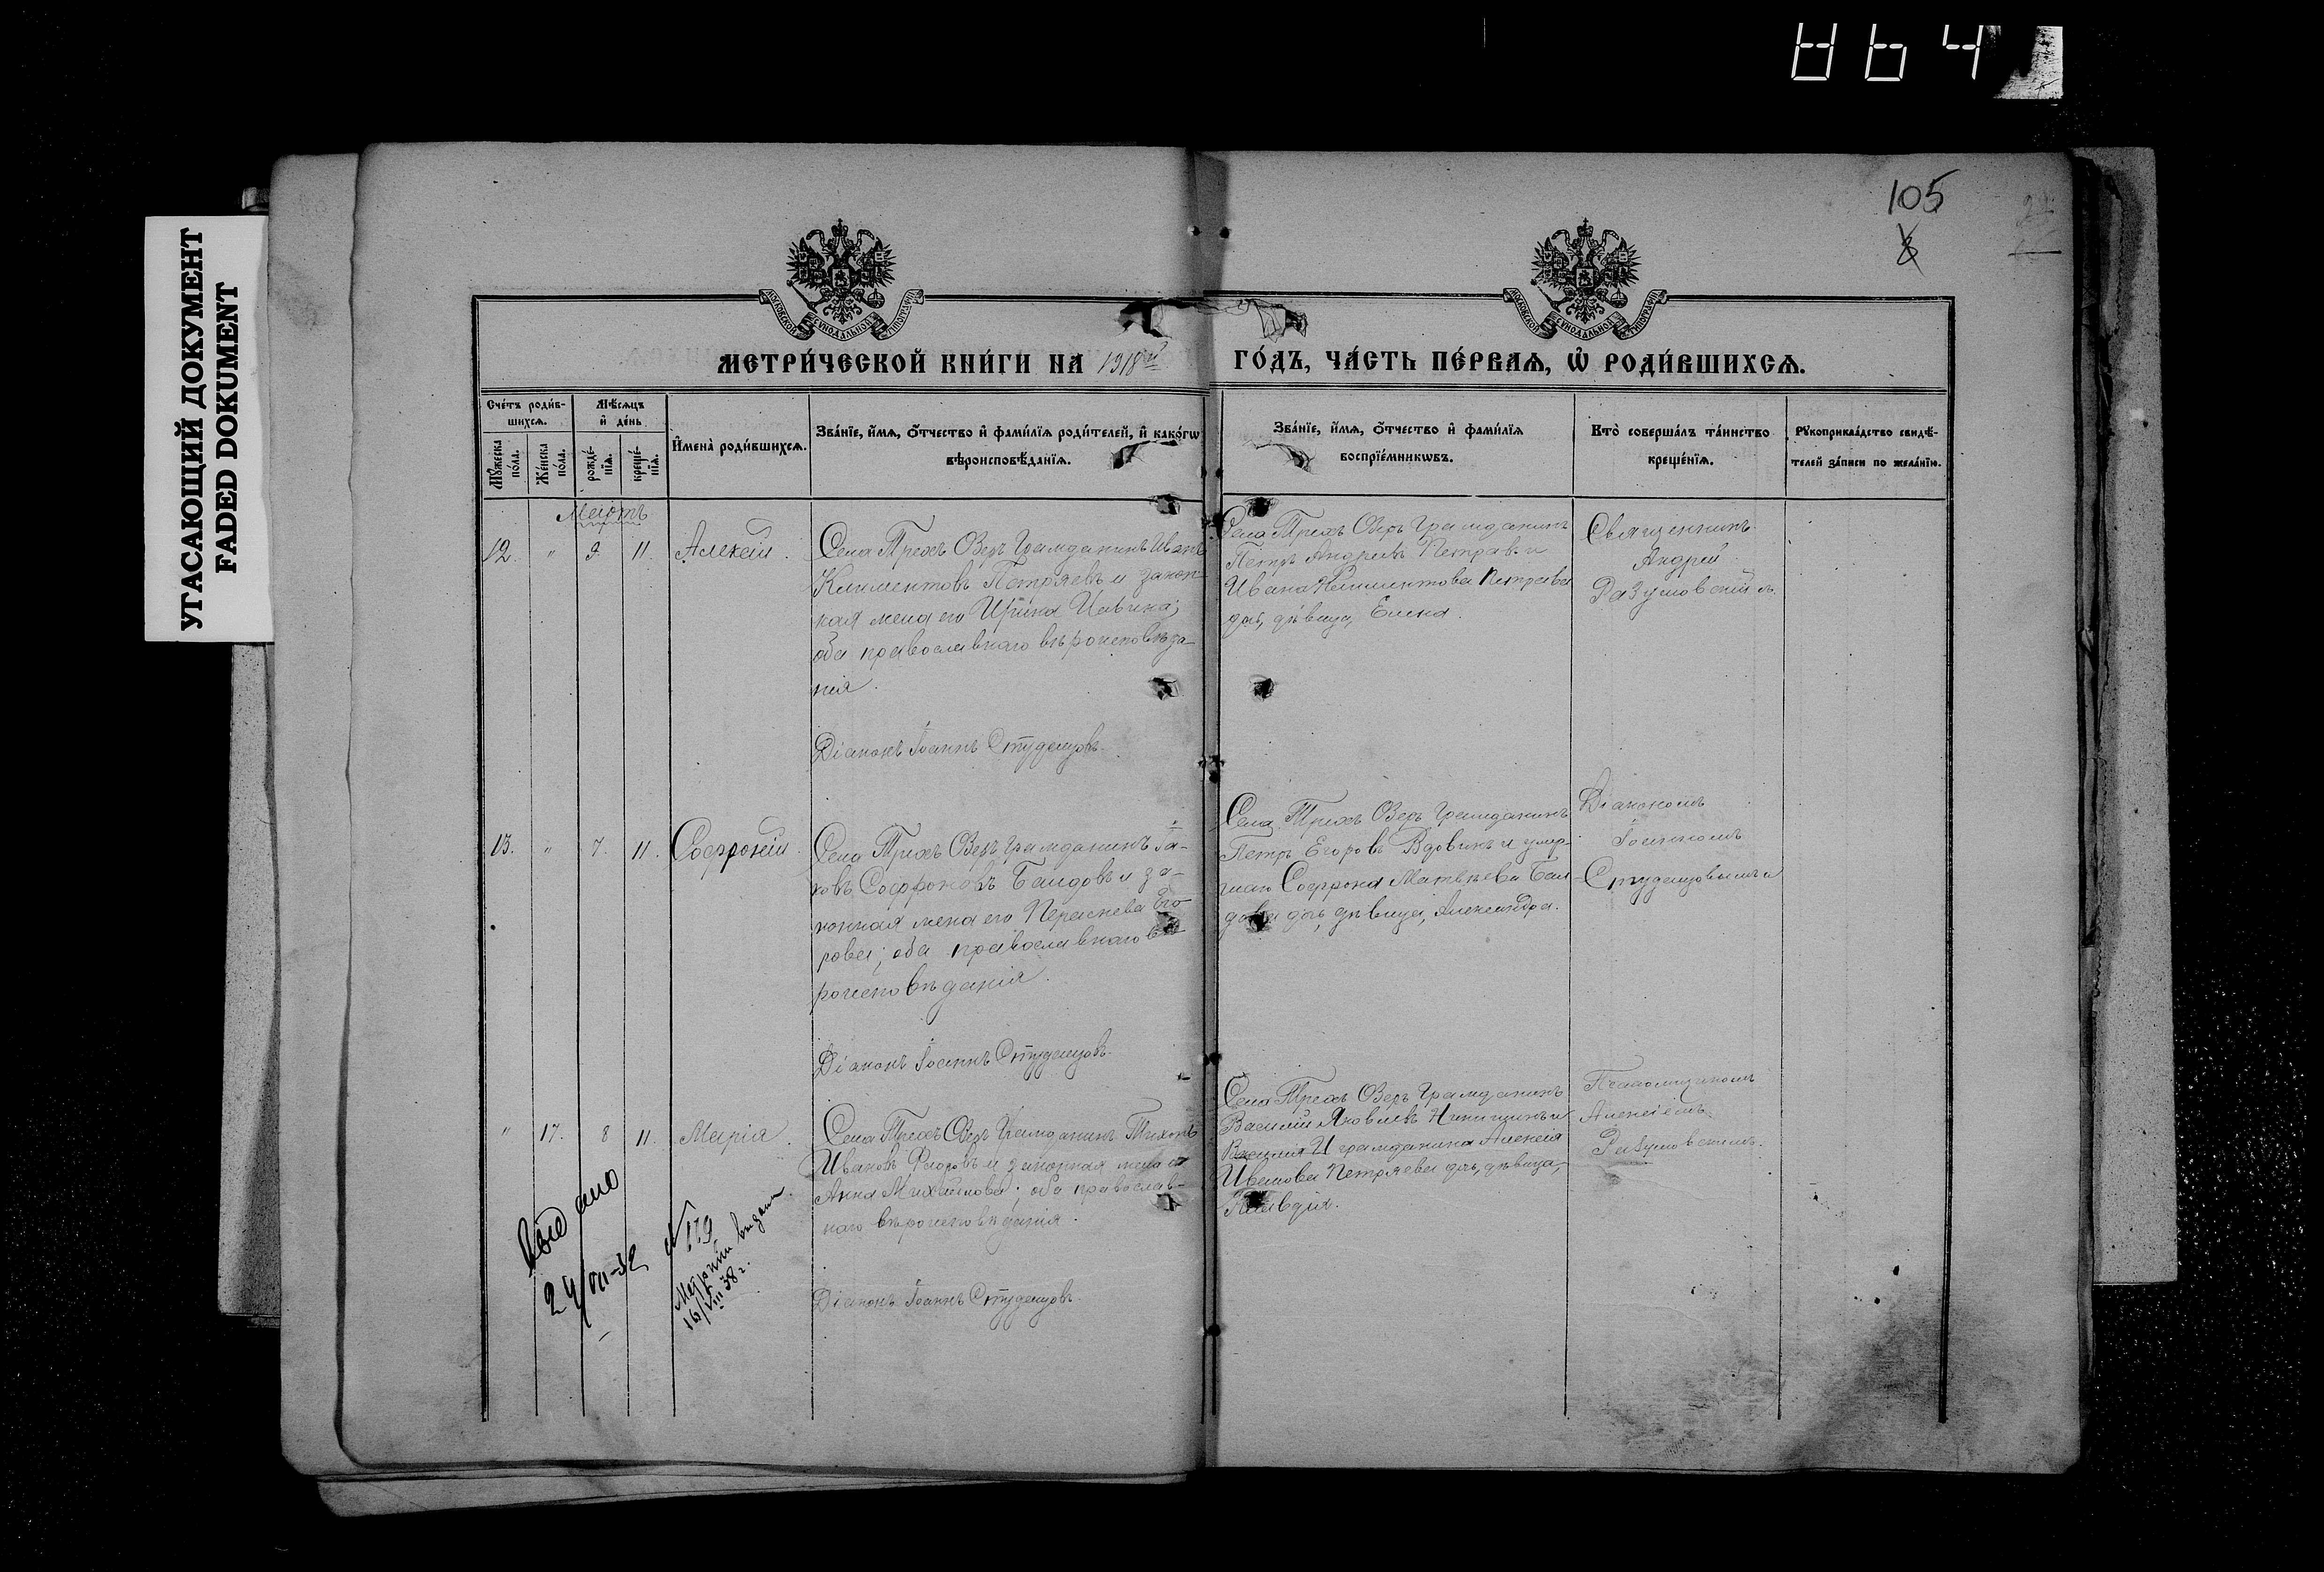 УГАСАЮЩИЙ ДОКУМЕНТ
FADED DOKUMENT
105
8
МОСКОВСКОЙ СѴНОДАЛЬНОЙ ТИПОГРАФІИ
МОСКОВСКОЙ СѴНОДАЛЬНОЙ ТИПОГРАФІИ
МЕТРИ́ЧЕСКОЙ КНИ́ГИ НА 1918й ГО́ДЪ, ЧА́СТЬ ПЕ́РВАѦ, Ѡ҆ РОДИ́ВШИХСѦ.
Сче́тъ роди́в-
шихсѧ.
Мꙋ́жеска
пола.
Же́нска
по́ла.
Мѣ́сѧцъ
и҆ де́нь
рожде́-
нїѧ.
креще́-
нїѧ.
И҆мена̀ роди́вшихсѧ.
Зва́нїе, и҆́мѧ, ѻ҆́тчество и҆ фами́лїѧ роди́телей, и҆ како́гѡ
вѣроисповѣ́данїѧ.
Зва́нїе, и҆́мѧ, ѻ҆́тчество и҆ фами́лїѧ
воспрїе́мникѡвъ.
Кто̀ соверша́лъ та́инство
креще́нїѧ.
Рꙋкоприкла́дство свидѣ́-
телей за́писи по жела́нїю.
Мартъ
12. " 9. 11. Алексій.
Села Трехъ Озеръ гражданинъ Иванъ
Климентовъ Петряевъ и закон-
ная жена его Ирина
оба православнаго вѣроисповѣда-
нія.
Діаконъ Іоаннъ Студенцовъ.
Села Трехъ Озеръ гражданинъ
Петръ Андреевъ и
Ивана Климентова Петряева
дочь, дѣвица, Елена.
Священникъ
Андрей
Разумовскій
13. " 7. 11. Софроній.
Села Трехъ Озеръ гражданинъ Іа-
ковъ Софроновъ и за-
конная жена его Параскева Его-
рова; оба православнаго вѣ-
роисповѣданія.
Діаконъ Іоаннъ Студенцовъ.
Села Трехъ Озеръ гражданинъ
Петръ Егоровъ Вдовинъ и умер-
шаго Софрона Матвѣева
дочь, дѣвица, Александра.
Діакономъ
Іоанномъ
Студенцовымъ
" 17. 8 11. Марія.
Села Трехъ Озеръ гражданинъ Тихонъ
Ивановъ и законная жена его
Анна Михайлова; оба православ-
наго вѣроисповѣданія.
Діаконъ Іоаннъ Студенцовъ.
Села Трехъ Озеръ гражданинъ
Василій Яковлевъ Никишинъ и
гражданина Алексія
Иванова Петряева дочь, дѣвица,
Клавдія.
Псаломщикомъ
Алексіемъ
Разумовскимъ.
Выдано
24/VII-32
N 179
Метрики выдан
16/VIII 38 г.